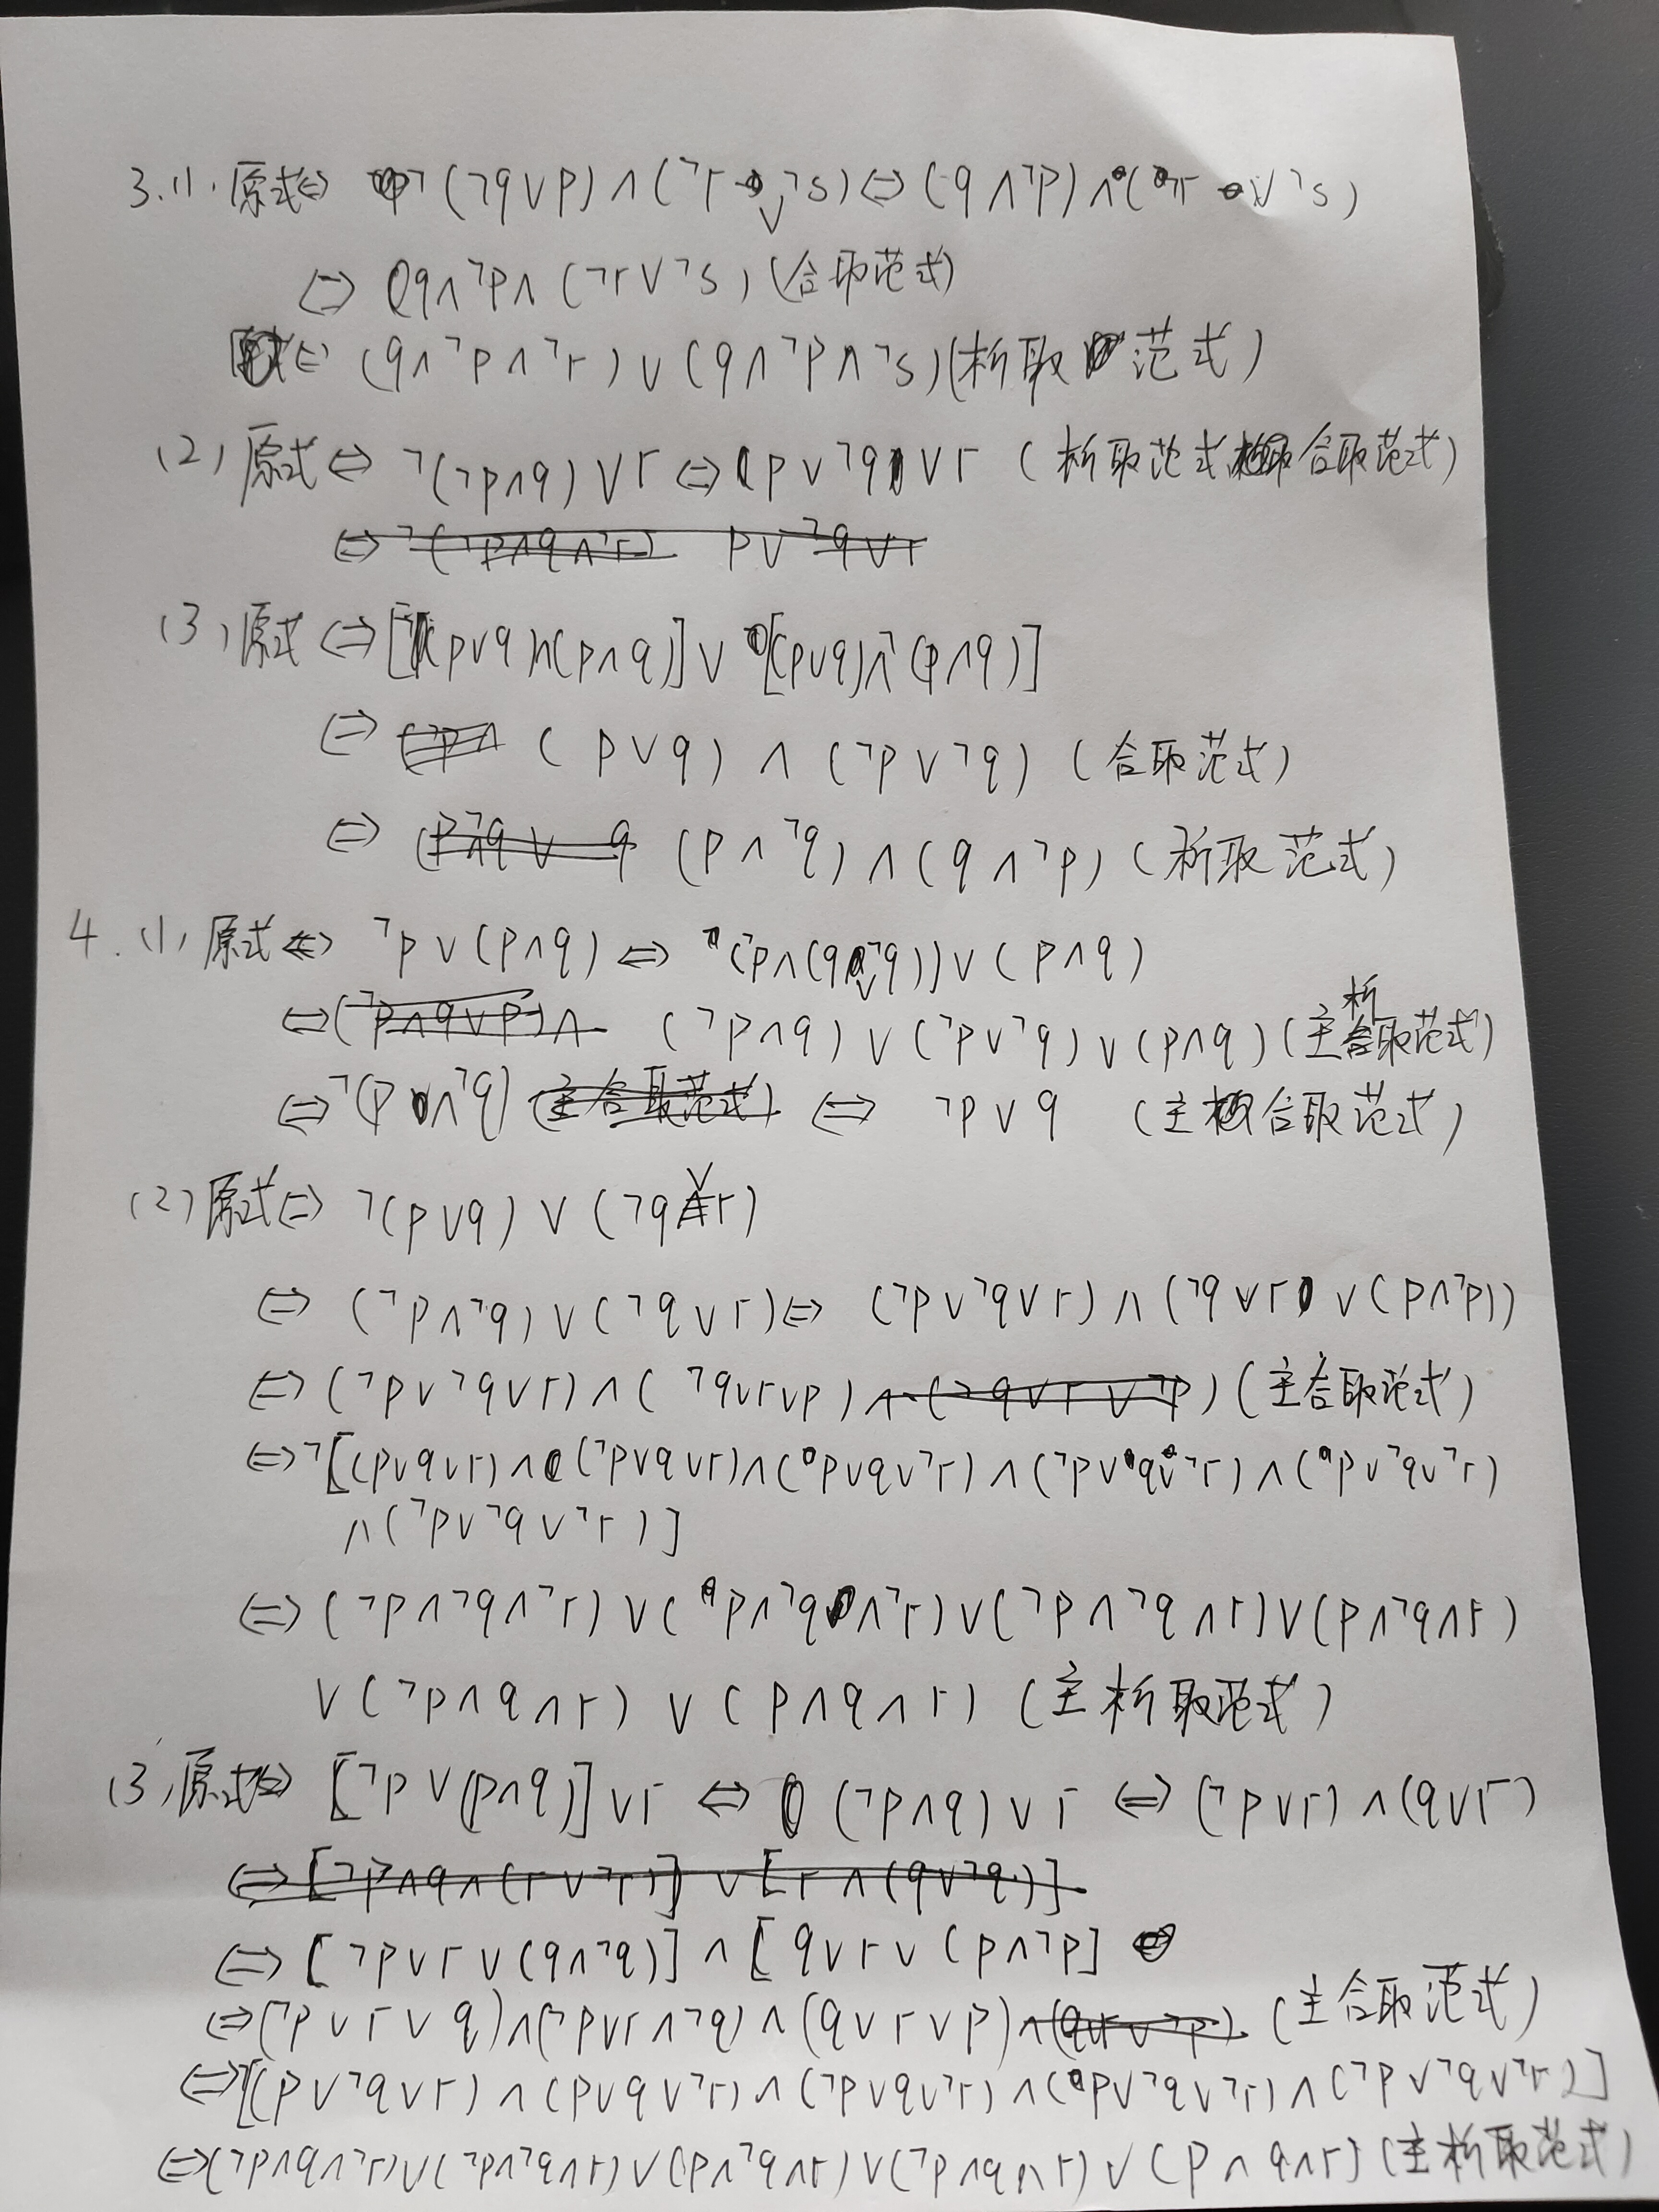 3.(1).原式⇔ ¬(¬q∨p)∧(¬r∨¬s)⇔(q∧¬p)∧(¬r∨¬s)
⇔ q∧¬p∧(¬r∨¬s)(合取范式)
⇔ (q∧¬p∧¬r)∨(q∧¬p∧¬s)(析取范式)
(2)原式⇔ ¬(¬p∧q)∨r⇔p∨¬q∨r (析取范式,合取范式)
⇔ ¬(¬p∧q∧¬r) p∨¬q∨r
(3)原式⇔[¬(p∨q)∧(p∧q)]∨[(p∨q)∧¬(p∧q)]
⇔ (p∨q)∧(¬p∨¬q)(合取范式)
⇔ (p∧¬q)∧(q∧¬p)(析取范式)
4.(1)原式⇔ ¬p∨(p∧q)⇔(¬p∧(q∨¬q))∨(p∧q)
⇔(¬p∧q∨p)∧ (¬p∧q)∨(¬p∨¬q)∨(p∧q)(主析取范式)
⇔¬(p∧¬q)(主合取范式)⇔ ¬p∨q (主合取范式)
(2)原式⇔ ¬(p∨q)∨(¬q∨r)
⇔(¬p∧¬q)∨(¬q∨r)⇔ (¬p∨¬q∨r)∧(¬q∨r∨(p∧¬p))
⇔(¬p∨¬q∨r)∧(¬q∨r∨p)∧(¬q∨r∨¬p)(主合取范式)
⇔¬[(p∨q∨r)∧(¬p∨q∨r)∧(p∨q∨¬r)∧(¬p∨q∨¬r)∧(p∨¬q∨¬r)
∧(¬p∨¬q∨¬r)]
⇔(¬p∧¬q∧¬r)∨(p∧¬q∧¬r)∨(¬p∧¬q∧r)∨(p∧¬q∧r)
∨(¬p∧q∧r)∨(p∧q∧r)(主析取范式)
(3)原式⇔ [¬p∨(p∧q)]∨r ⇔ (¬p∧q)∨r ⇔(¬p∨r)∧(q∨r)
⇔[¬p∧q∧(r∨¬r)]∨[r∧(q∨¬q)]
⇔[¬p∨r∨(q∧¬q)]∧[q∨r∨(p∧¬p]
⇔(¬p∨r∨q)∧(¬p∨r∧¬q)∧(q∨r∨p)∧(q∨r∨¬p)(主合取范式)
⇔¬[(p∨¬q∨r)∧(p∨q∨¬r)∧(¬p∨q∨¬r)∧(p∨¬q∨¬r)∧(¬p∨¬q∨¬r)]
⇔(¬p∧q∧¬r)∨(¬p∧¬q∧r)∨(p∧¬q∧r)∨(¬p∧q∧r)∨(p∧q∧r)(主析取范式)